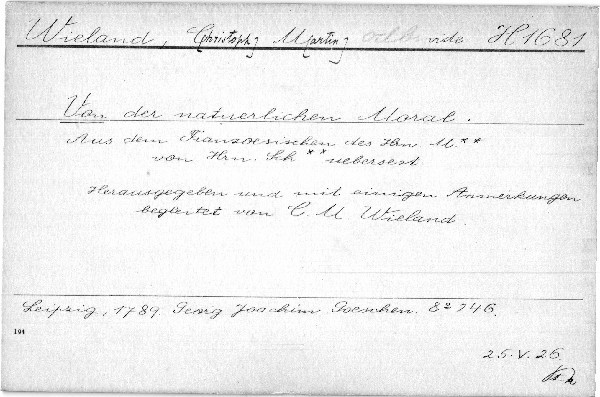 Wieland, Christoph] Martin] vide H1681
Von der natuerlichen Moral.
Aus dem Franzoesischen des Hrn. M.**
von Hrn. Sch** uebersezt
Herausgegeben und mit einigen Anmerkungen
begleitet von C. M Wieland.
Leipzig, 1789. Georg Joachim Goeschen. 8º 246.
194
25.V.26.